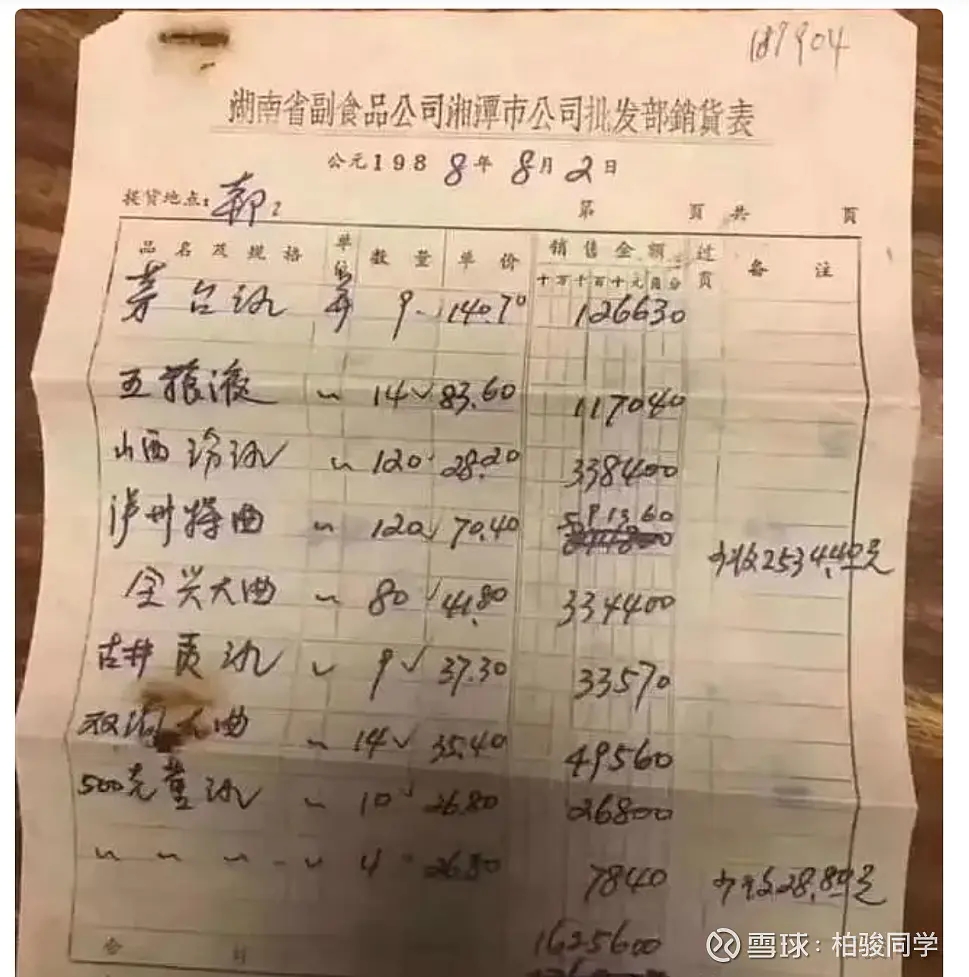 189904
湖南省副食品公司湘潭市公司批发部銷貨表
公元198 8年 8月 2日
提货地点: 第 页共 页
品名及规格 单位 数量 单价 销售金额 过页 备注
十万千百十元角分
茅台酒 并 9 140.70 126630
五粮液 〃 14 83.60 117040
山西汾酒 〃 120 28.20 338400
泸州特曲 〃 120 70.40 591360
少收2534.40元
全兴大曲 〃 80 41.80 334400
古井贡酒 〃 9 37.30 33570
双沟大曲 〃 14 35.40 49560
500克董酒 〃 10 26.80 26800
〃 〃 〃 〃 〃 4 26.80 7840 28.80元
合计 1625600
雪球:柏骏同学